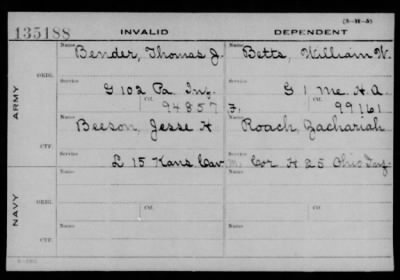 (3-M-5)
135188 INVALID DEPENDENT
Name Bender, Thomas J. Name Betts, William W.
ORIG.
Service G 102 Pa Inf. Service G 1 Me. H.A.
Ctf. 94857 Ctf. 99161
ARMY
Name Beeson, Jesse H Name Roach, Zachariah
Service L 15 Kans Cav Service Cor H 25 Ohio Inf.
CTF.
Ctf. Ctf.
Name Name
ORIG.
NAVY
Service Service
Ctf. Ctf.
Name Name
CTF.
Service